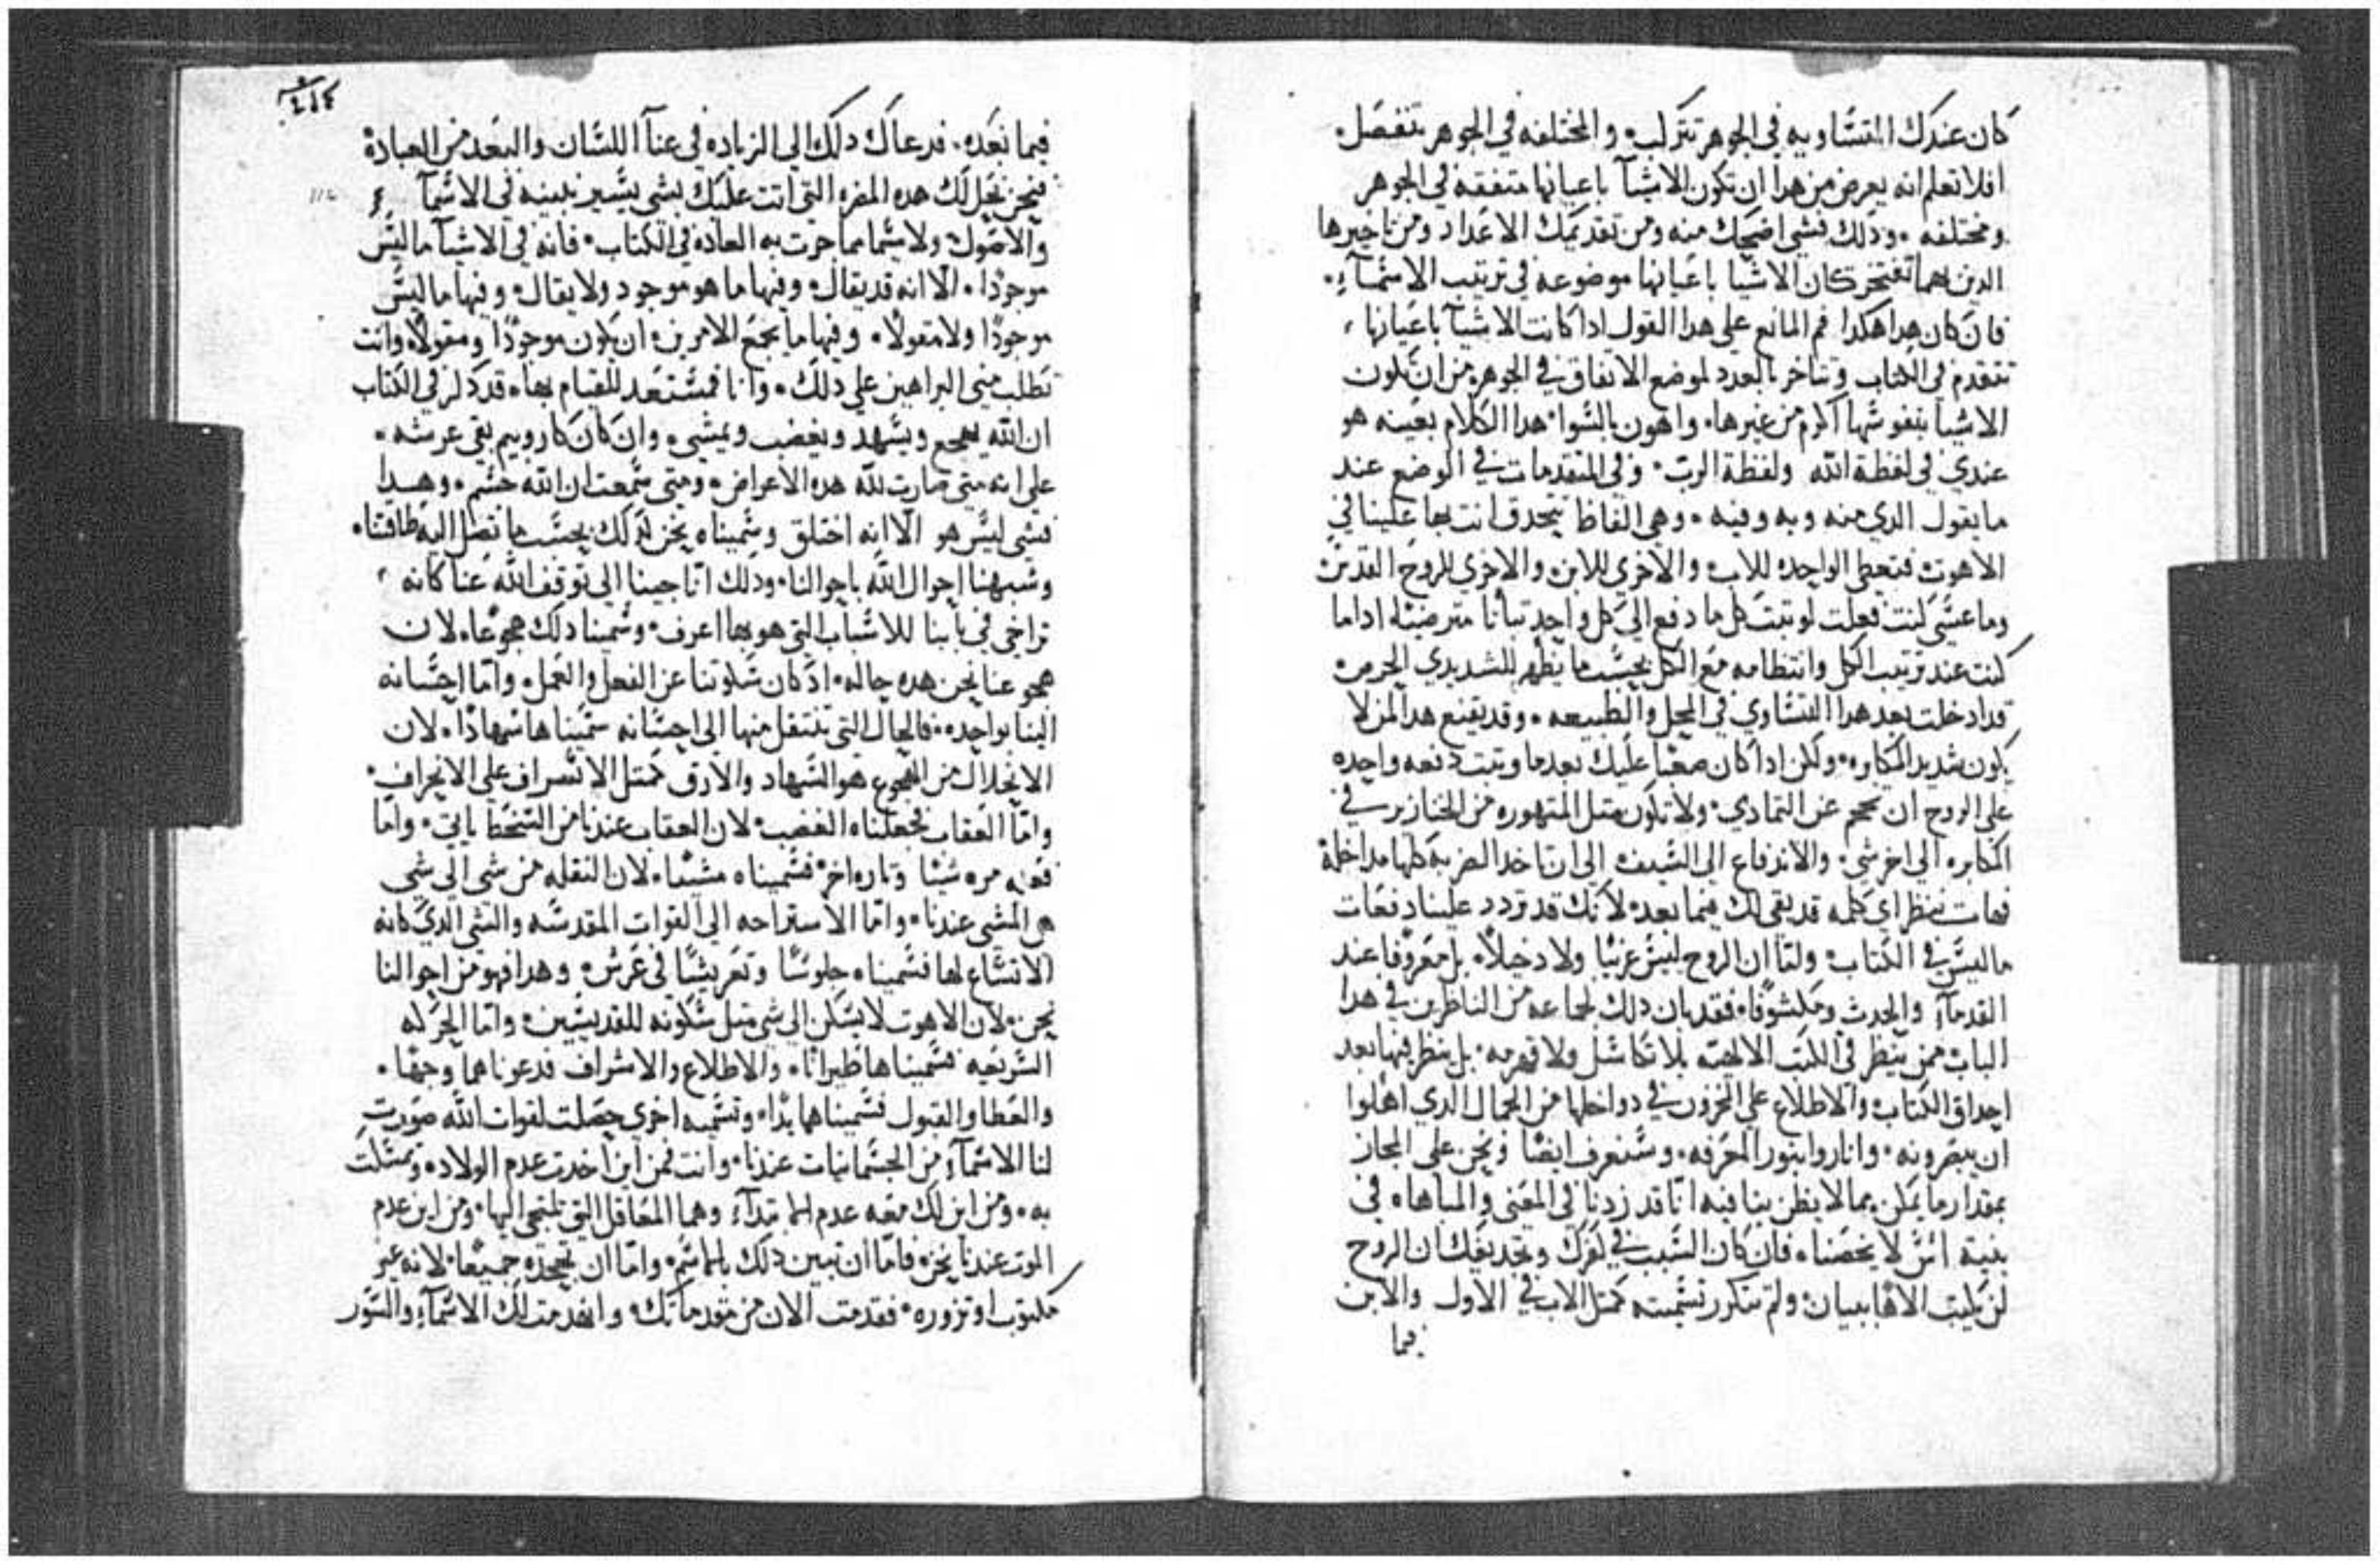 كان عندك المتساويه في الجوهر تتركب والمختلفه في الجوهر تنفصل.
افلا تعلم انه يعرض من هدا ان تكون الاشيآ باعيانها متفقه في الجوهر
ومختلفه. ودلك فشي اضحك منه ومن تقديمك الاعداد ومن تاخيرها
الدين بهما تفتخر كان الاشيا باعيانها موضوعه في ترتيب الاسمآء.
فان كان هدا هكدا فم المانع على هدا القول ادا كانت الاشيآ باعيانها
تتقدم في الكتاب وتتاخر بالعدد لموضع الاتفاق في الجوهر من ان تكون
الاشيا بنفوسها اكرم من غيرها. واهون بالسوا هدا الكلام بعينه هو
عندي في لفظة الله ولفظة الرب. وفي المتقدمات في الوضع عند
ما يقول الدي منه وبه وفيه. وهي الفاظ تتحدق انت بها علينا في
الاهوت فتعطي الواحده للاب والاخري للابن والاخري للروح القدس
وما عسي كنت فعلت لو تبت كل ما دفع الي كل واحد تباتا
كنت عند ترتيب الكل وانتظامه مع الكل بحسب ما يظهر للشديدي الحرص
قد ادخلت بعد هدا التساوي في المحل والطبيعه. وقد يقنع هدا لمن لا
يكون شديد المكابره ولكن ادا كان صعبا عليك بعدما وتبت دفعه واحده
على الروح ان تحجم عن التمادي. ولا تكون متل المتهوره من الخنازير في
المكابره الى اخر شي. والاندفاع الى السيف الى ان تاخد الضربه كلها مداخلة
فهات ننظر اي كلمه قد بقي لك فيما بعد لانك قد تردد علينا دفعات
ما ليس في الكتاب ولنا ان الروح ليس غريبا ولا دخيلا. بل معروفا عند
القدمآء والحدث ومكشوفا. فقد بان دلك لجماعه من الناظرين في هدا
الباب ممن ينظر في الكتب الالهيه بلا تكاسل ولا بل ينظر فيها بعد
احداق الكتاب والاطلاع على المخزون في دواخلها من الجمال الدي اهلوا
ان يبصرونه. واناروا بنور المعرفه. وسنعرف ايضا ونحن على المجاز
بمقدار ما يمكن بما لا يظن بنا فيه انا قد زدنا في المعنى والمباهاه في
بنية اس لا يخصنا. فان كان السبب في كفرك وتجديفك ان الروح
لن يكتب الاها ببيان ولم تتكرر تسميته كمتل الاب في الاول والابن
فيما
فيما بعده. فدعاك دلك الى الزياده في عنآ اللسان والبعد من العباده
فنحن نحل لك هده المضره التي اتت عليك بشي يسير نبينه في الاسمآ
والاصول ولا سيما مما جرت به العاده في الكتاب. فانه في الاشيآ ما ليس
موجودا. الا انه قد يقال وفيها ما هو موجود ولا يقال وفيها ما ليس
موجودا ولا مقولا. وفيها ما يجمع الامرين ان يكون موجودا ومقولا. وانت
تطلب مني البراهين على دلك. وانا فمستعد للقيام بها. قد دكر في الكتاب
ان الله يهجع ويسهد ويغضب ويمشي. وان كان كاروبيم بقي عرشه.
على انه متى صارت لله هده الاعراض ومتى سمعت ان الله جسم. وهدا
فشي ليس هو الا انه اختلق وسميناه نحن كدلك بحسب ما تصل اليه طاقتنا.
وشبهنا احوال الله باحوالنا. ودلك انا جينا الى توقف الله عنا كانه
تراخي في بابنا للاسباب التي هو بها اعرف وسمينا دلك هجوعا. لان
هجوعنا نحن هده حاله. اد كان سكوتنا عن الفعل والعمل. واما احسانه
الينا بواحده. فالحال التي ننتقل منها الى احسانه سميناها سهادا. لان
الانحلال من الهجوع هو السهاد والارق كمتل الاشراف على الانحراف
واما العقاب فجعلناه الغضب لان العقاب عندنا من التسخط ياتي. واما
مره شيا وتاره اخر فسميناه مشيا. لان النقله من شي الى شي
هي المشي عندنا. واما الاستراحه الى القوات المقدسه والشي الدي كانه
الاتساع لها فسميناه جلوسا وتعريشا في عرش وهدا فهو من احوالنا
نحن لان الاهوت لا يسكن الى شي متل سكونه للقديسين. واما الحركه
السريعه فسميناها طيرانا. والاطلاع والاشراف فدعوناهما وجها.
والعطا والقبول فسميناهما يدا. وتسميه اخري حصلت لقوات الله صورت
لنا الاسمآء من الجسمانيات عندنا. وانت فمن اين اخدت عدم الولاده وتمتلت
به. ومن اين لك معه عدم الابتدآء وهما المعاقل التي تلتجي اليها. ومن اين عدم
الموت عندنا نحن فاما ان تبين دلك بالاسم. واما ان تجحده جميعا. لانه غير
مكتوب او تزوره فقد مت الان من مقدماتك. وانهدمت لك الاسمآء والسور